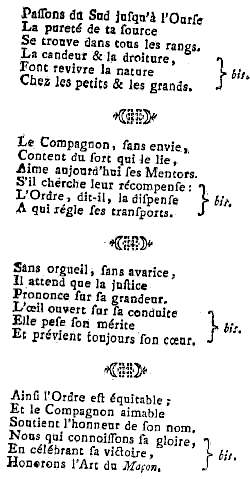 Paſſons du Sud juſqu'à l'Ourſe
La pureté de ta ſource
Se trouve dans tous les rangs.
La candeur & la droiture,
Font revivre la nature
Chez les petits & les grands.
bis.
Le Compagnon, ſans envie,
Content du ſort qui le lie,
Aime aujourd'hui ſes Mentors.
S'il cherche leur récompenſe :
L'Ordre, dit-il, la diſpenſe
A qui régle ſes tranſports.
bis.
Sans orgueil, ſans avarice,
Il attend que la juſtice
Prononce ſur ſa grandeur.
L'œil ouvert ſur ſa conduite
Elle peſe ſon mérite
Et prévient toujours ſon cœur.
bis.
Ainſi l'Ordre eſt équitable ;
Et le Compagnon aimable
Soutient l'honneur de ſon nom.
Nous qui connoiſſons ſa gloire,
En célébrant ſa victoire,
Honorons l'Art du Maçon.
bis.